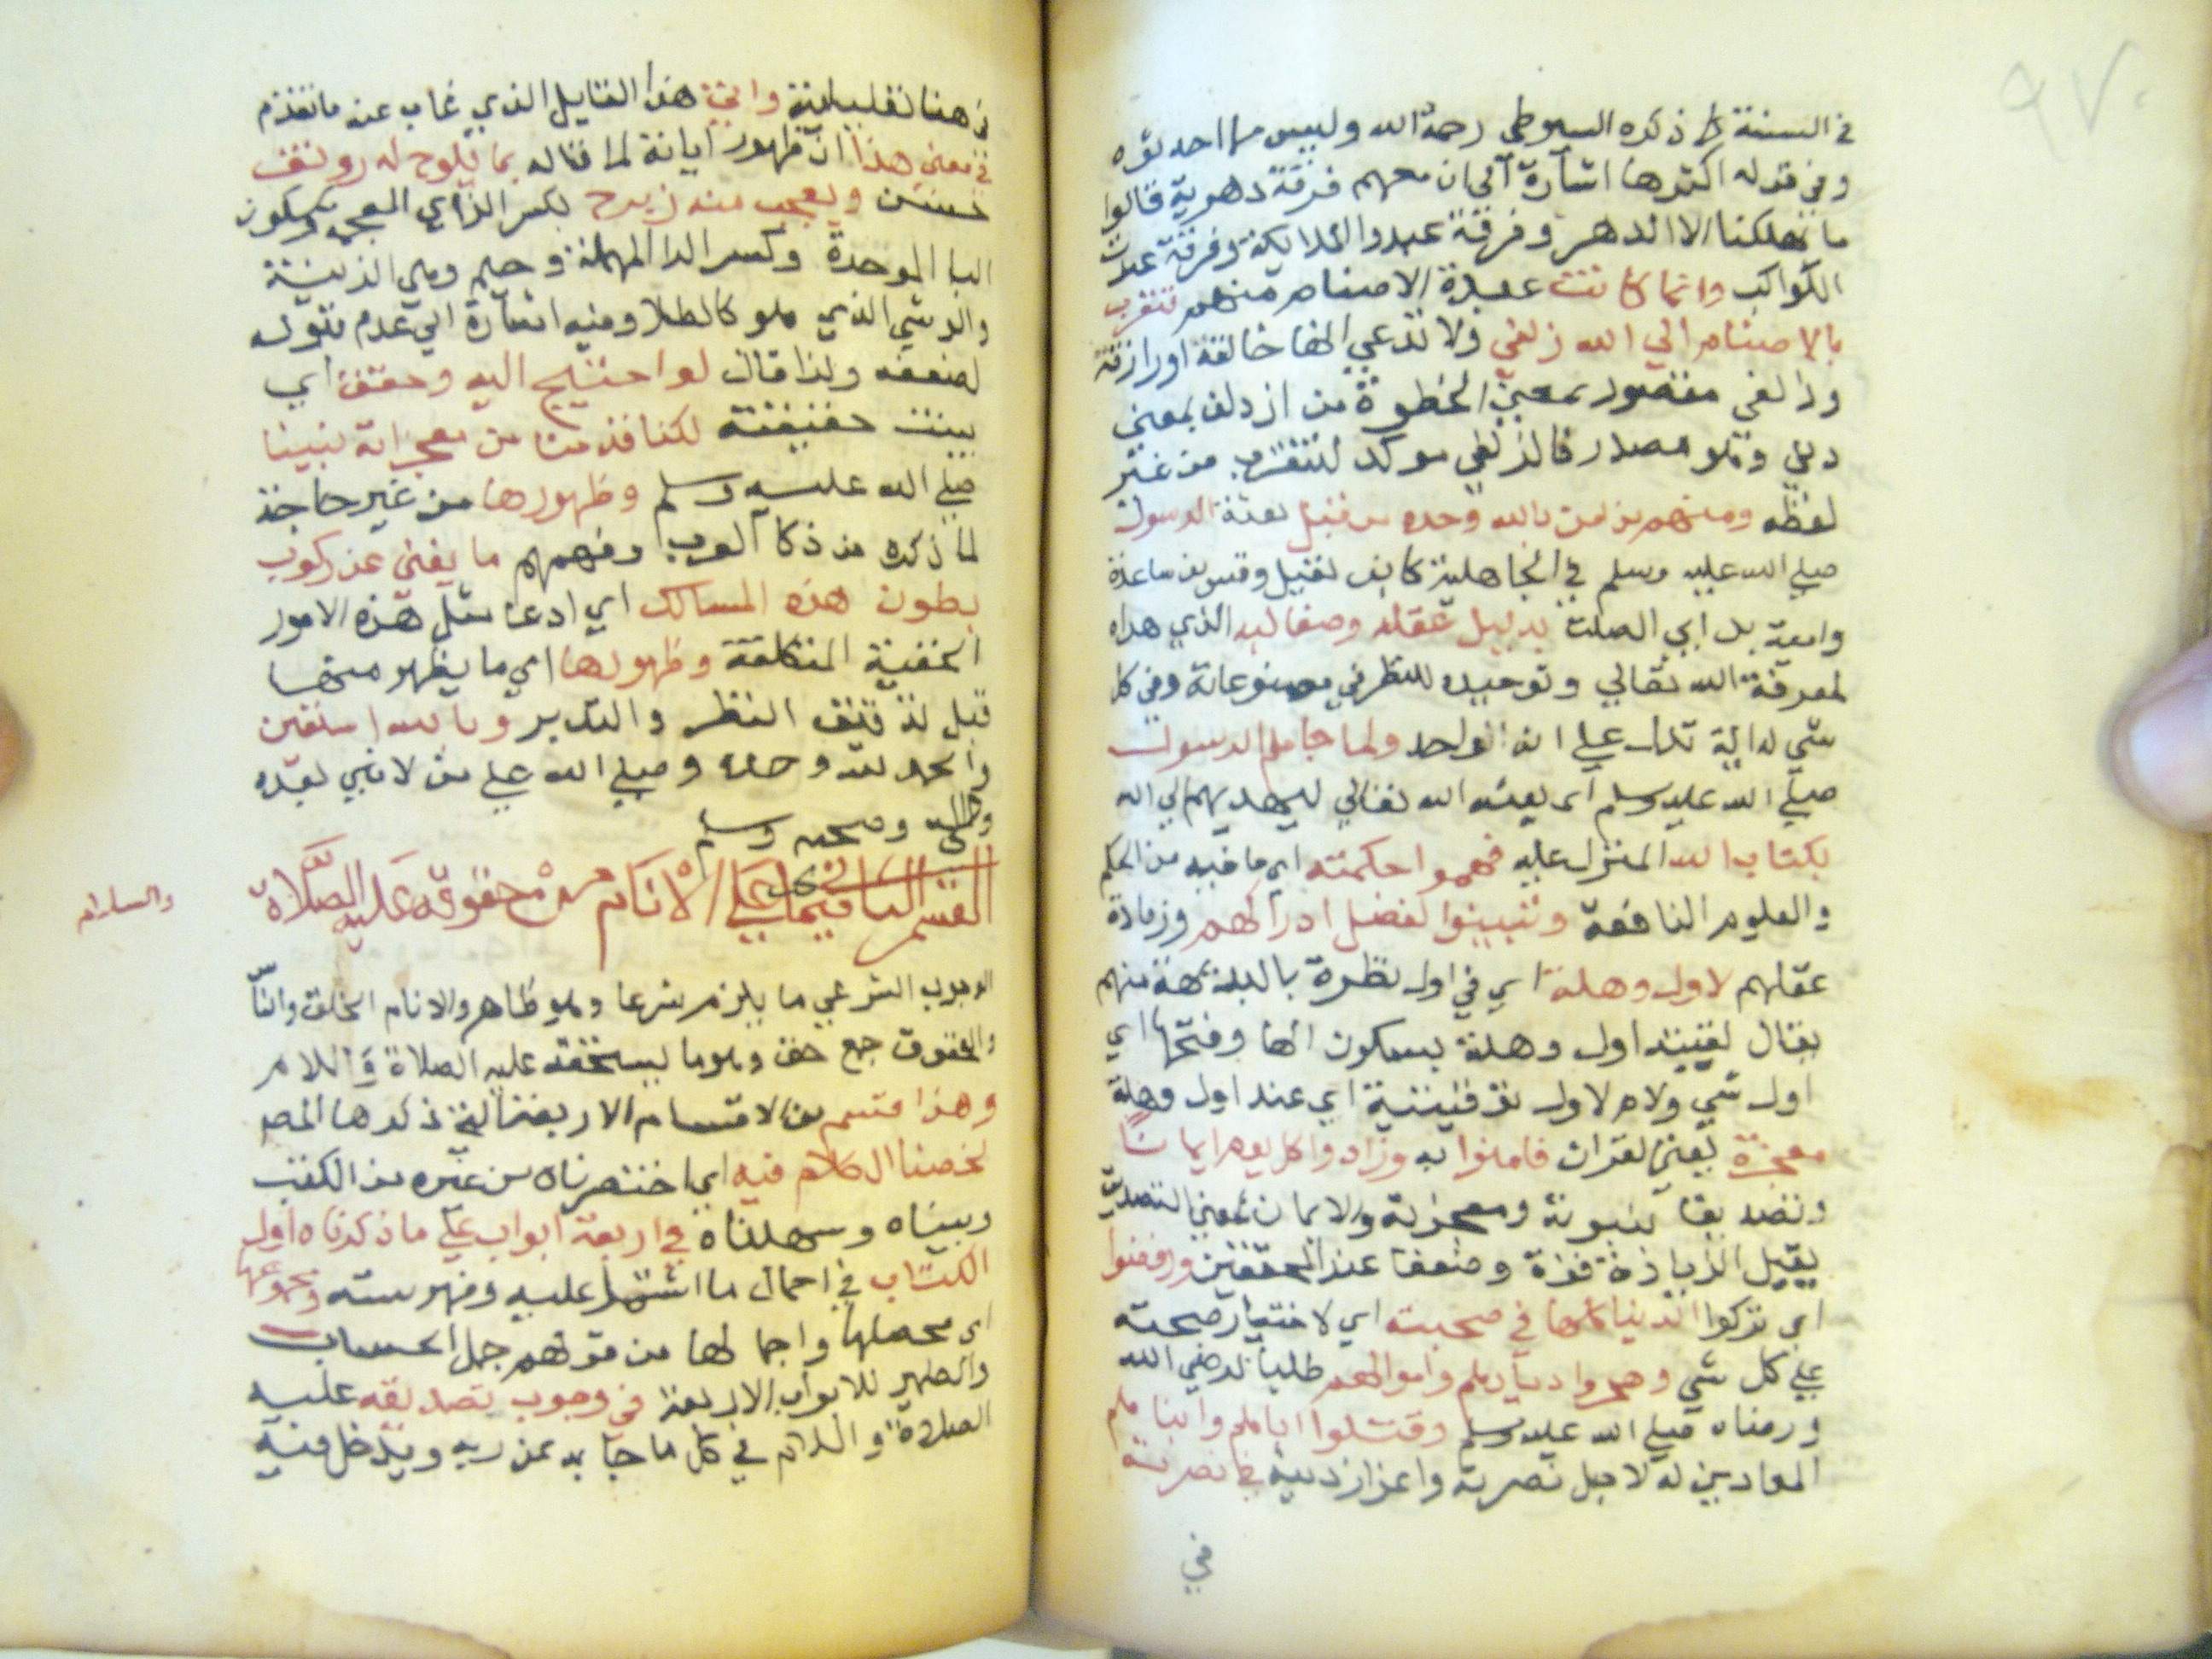 ٩٧
في السنة كما ذكره السيوطي رحمه الله وليس مما احد نوه
وفي قوله اكثرها اشارة الي ان معهم فرقة دهرية قالوا
ما يهلكنا الا الدهر وفرقة عبدوا الملايكة وفرقة عبدت
الكواكب وانما كانت عبدة الاصنام منهم تتقرب
بالاصنام الي الله زلفي ولا تدعي انها خالقة او رازقة
وزالفي مقصور بمعني الخطوة من ازدلف بمعني
دني وهو مصدر فالزلفي موكد لتتقرب من غير
لفظه ومنهم من امن بالله وحده من قبل بعثة الرسول
صلي الله عليه وسلم في الجاهلية كابن نفيل وقس بن ساعدة
وامية بن ابي الصلت بدليل عقله وصفا لبه الذي هداه
لمعرفة الله تعالي وتوحيده للنظر في مصنوعاته وفي كل
شي له اية تدل علي انه الواحد ولما جاهم الرسول
صلي الله عليه وسلم اي بعثه الله تعالي ليهديهم الي الله
بكتاب الله المنزل عليه فهموا حكمته اي ما فيه من الحكم
والعلوم النافعة وتبينوا لفضل ادراكهم وزيادة
عقلهم لاول وهلة اي في اول نظرة بالبديهة منهم
يقال لقيته اول وهلة بسكون الها وفتحها اي
اول شي ولام لاول توقيتية اي عند اول وهلة
معجزة يعني القران فامنوا به وزادوا كل يوم ايمانا
وتصديقا بنبوته ومعجزته والايمان بمعني التصديق
يقبل الزيادة قوة وضعفا عند المحققين ورفضوا
اي تركوا الدنيا كلها في صحبته اي لاختيار صحبته
علي كل شي وهجروا ديارهم واموالهم طلبا لرضي الله
ورضاه صلي الله عليه وسلم وقتلوا اباهم وابناهم
المعادين له لاجل نصرته واعزاز دينه في نصرته
في
من هنا لقلب الينة واتي هذا القايل الذي غاب عنه ما تقدم
في معني هذا ان ظهور ايانة لما قاله بما يلوح له رونق
حسن ويعجب منه زبرج بكسر الزاي المعجمة وسكون
البا الموحدة وكسر الرا المهملة وجيم وهي الزينة
والوشي الذي هو كالطلا وفيه اشارة الي عدم قبوله
لضعفه ولذا قال لو احتيج اليه وحقق اي
بينت حقيقته لكنا قدمنا من معجزاته نبينا
صلي الله عليه وسلم وظهورها من غير حاجة
لما ذكره من ذكا العرب وفهمهم ما يغني عن ركوب
بطون هذه المسالك اي ادعا مثل هذه الامور
الخفية المتكلفة وظهورها اي ما يظهر منها
قبل تدقيق النظر والتدبر وبالله استعين
والحمد لله وحده وصلي الله علي من لا نبي بعده
واله وصحبه وسلم
القسم الثاني فيما يجب علي الانام من حقوقه عليه الصلاة
والسلام
الوجوب الشرعي ما يلزم شرعا وهو ظاهر والانام الخلق والنا
والحقوق جمع حق وهو ما يستحقه عليه الصلاة والسلام
وهذا قسم من الاقسام الاربعة التي ذكرها المص
لخصنا الكلام فيه اي اختصرناه من غيره من الكتب
وبيناه وسهلناه في اربعة ابواب علي ما ذكرناه اول
الكتاب في اجمال ما اشتمل عليه وفهرسته ومجموعها
اي محصلها واجمالها من قولهم جمل الحساب
والضمير للابواب الاربعة في وجوب تصديقه عليه
الصلاة والسلام في كل ما جا به عن ربه ويدخل فيه